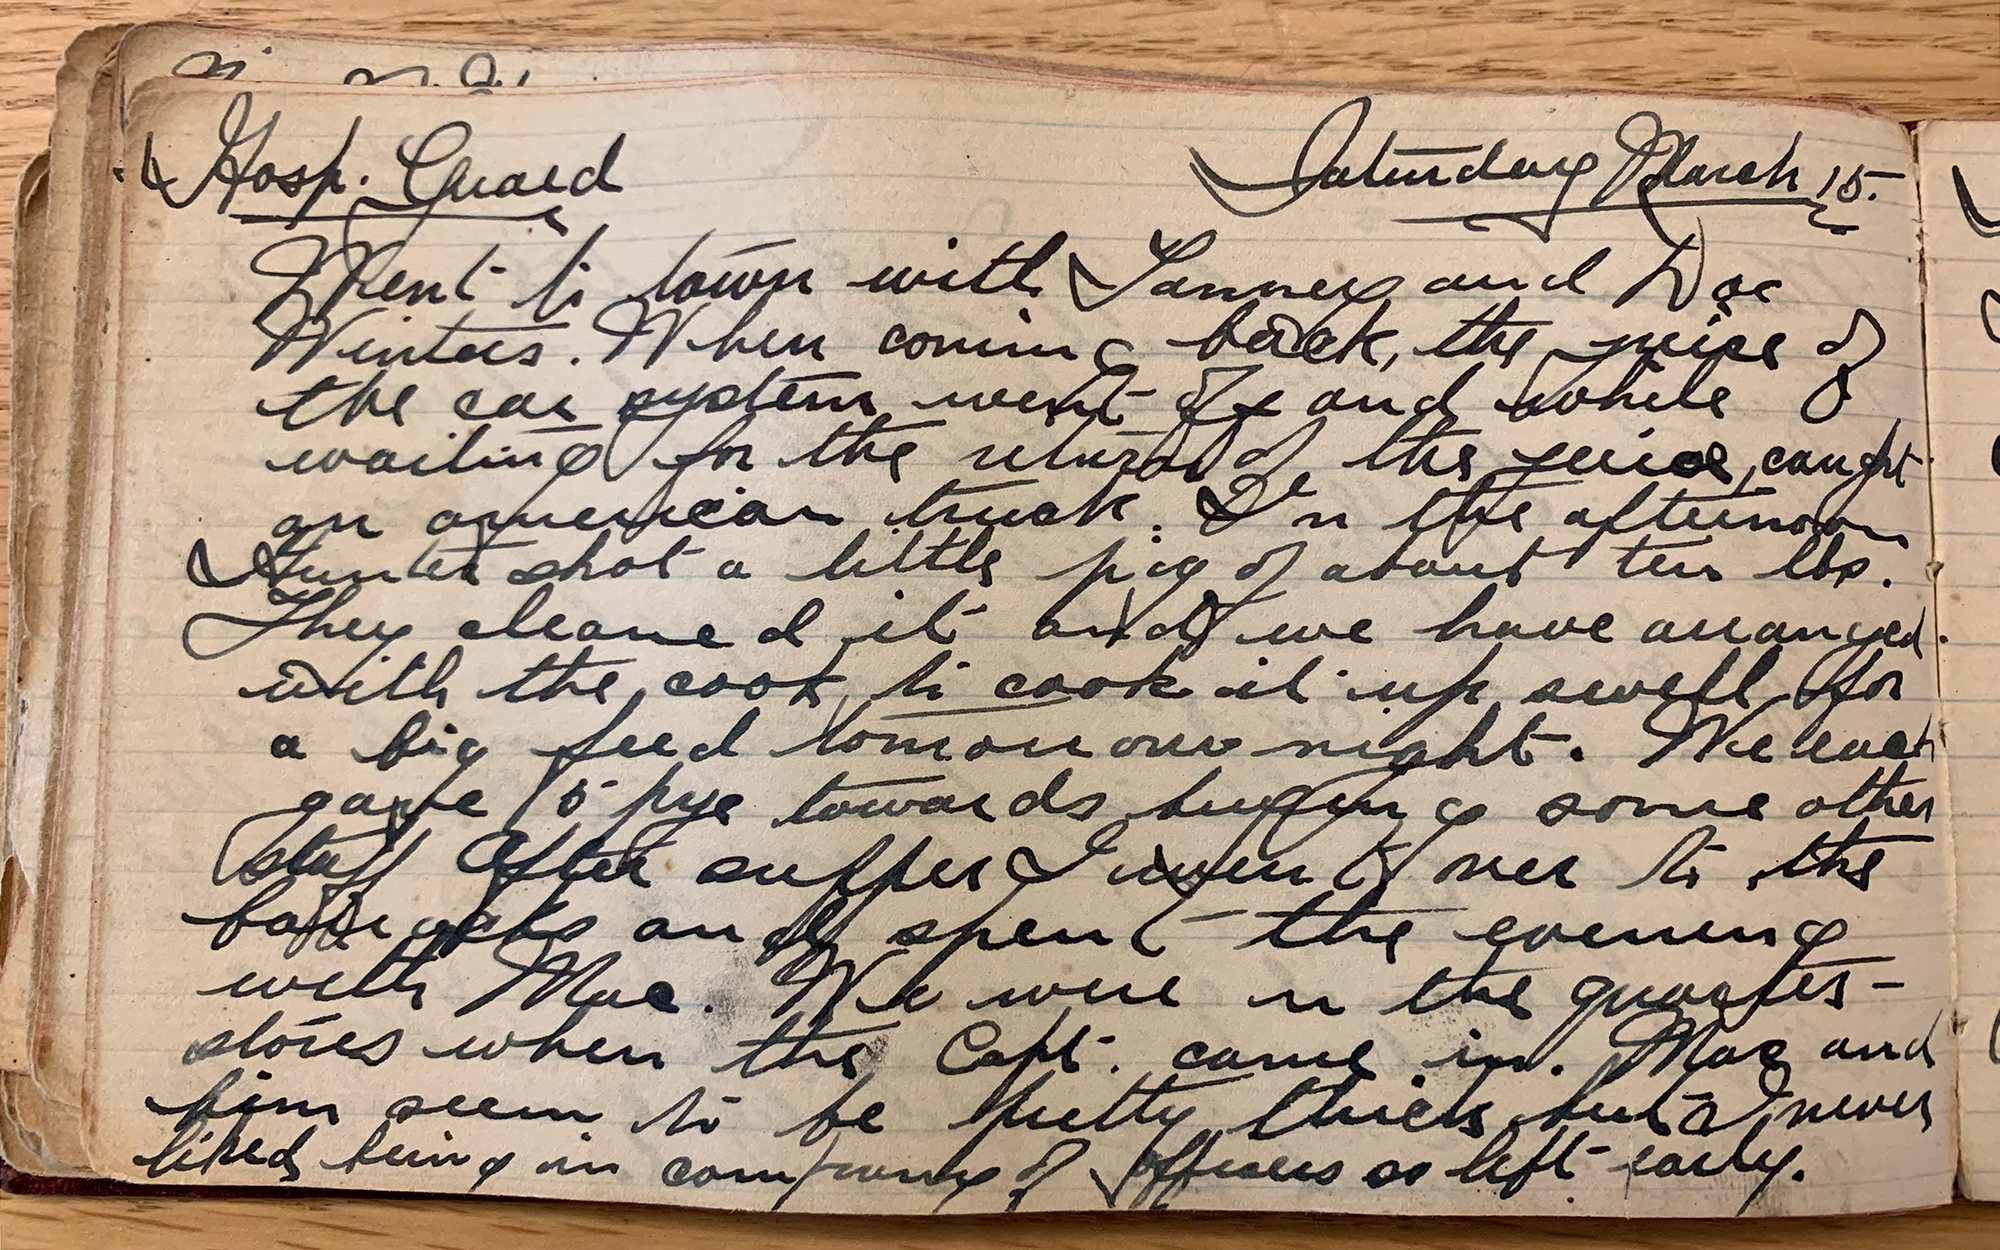 Hosp. Guard Saturday March 15.
Went to town with Tanney and Doc
Winters. When coming back, the juice of
the car system went off and while
waiting for the return of the juice, caught
an american truck. In the afternoon
Hunter shot a little pig of about ten lbs.
They cleaned it and we have arranged
with the cook to cook it up swell for
a big feed tomorrow night. We each
gave 5 towards buying some other
stuff After supper I went over to the
barracks and spent the evening
with Mac. We were in the quarter-
stores when the Capt. came in. Mac and
him seem to be pretty thick but I never
liked being in company of officers so left early.